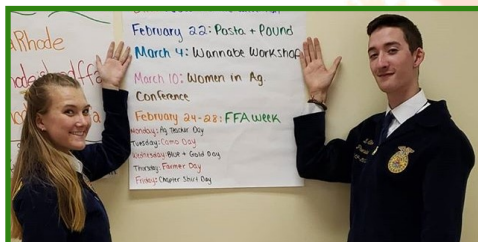 Rhode
February 22: Pasta + Pound
March 4: Wannabe Workshop
March 10: Women in Ag.
Conference
February 24-28: FFA week
Monday: Ag Teacher Day
Tuesday: Camo Day
Wednesday: Blue + Gold Day
Thursday: Farmer Day
Friday: Chapter Shirt Day